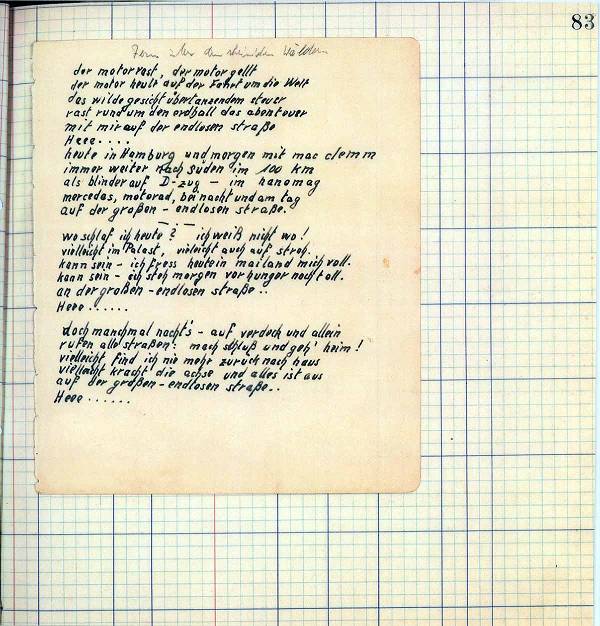 83
Fern über den Wäldern
der motor rast, der motor gellt
der motor heult auf der Fahrt um die Welt
das wilde gesicht übertanzendem steuer
rast rund um den erdball das abenteuer
mit mir auf der endlosen straße
Heee....
heute in Hamburg und morgen mit mac clemm
immer weiter nach süden im 100 km
als blinder auf D-zug – im hanomag
mercedes, motorad, bei nacht und am tag
auf der großen - endlosen straße.
wo schlaf ich heute? ich weiß nicht wo!
vielleicht im Palast, vieleicht auch auf stroh.
kann sein - ich fress heute in mailand mich voll.
kann sein - ich steh morgen vor hunger noch toll.
an der großen - endlosen straße..
Heee......
doch manchmal nacht's - auf verdeck und allein
rufen alle straßen: mach schluß und geh' heim!
vielleicht find ich nie mehr zurück nach haus
vielleicht kracht die achse und alles ist aus
auf der großen - endlosen straße..
Heee......